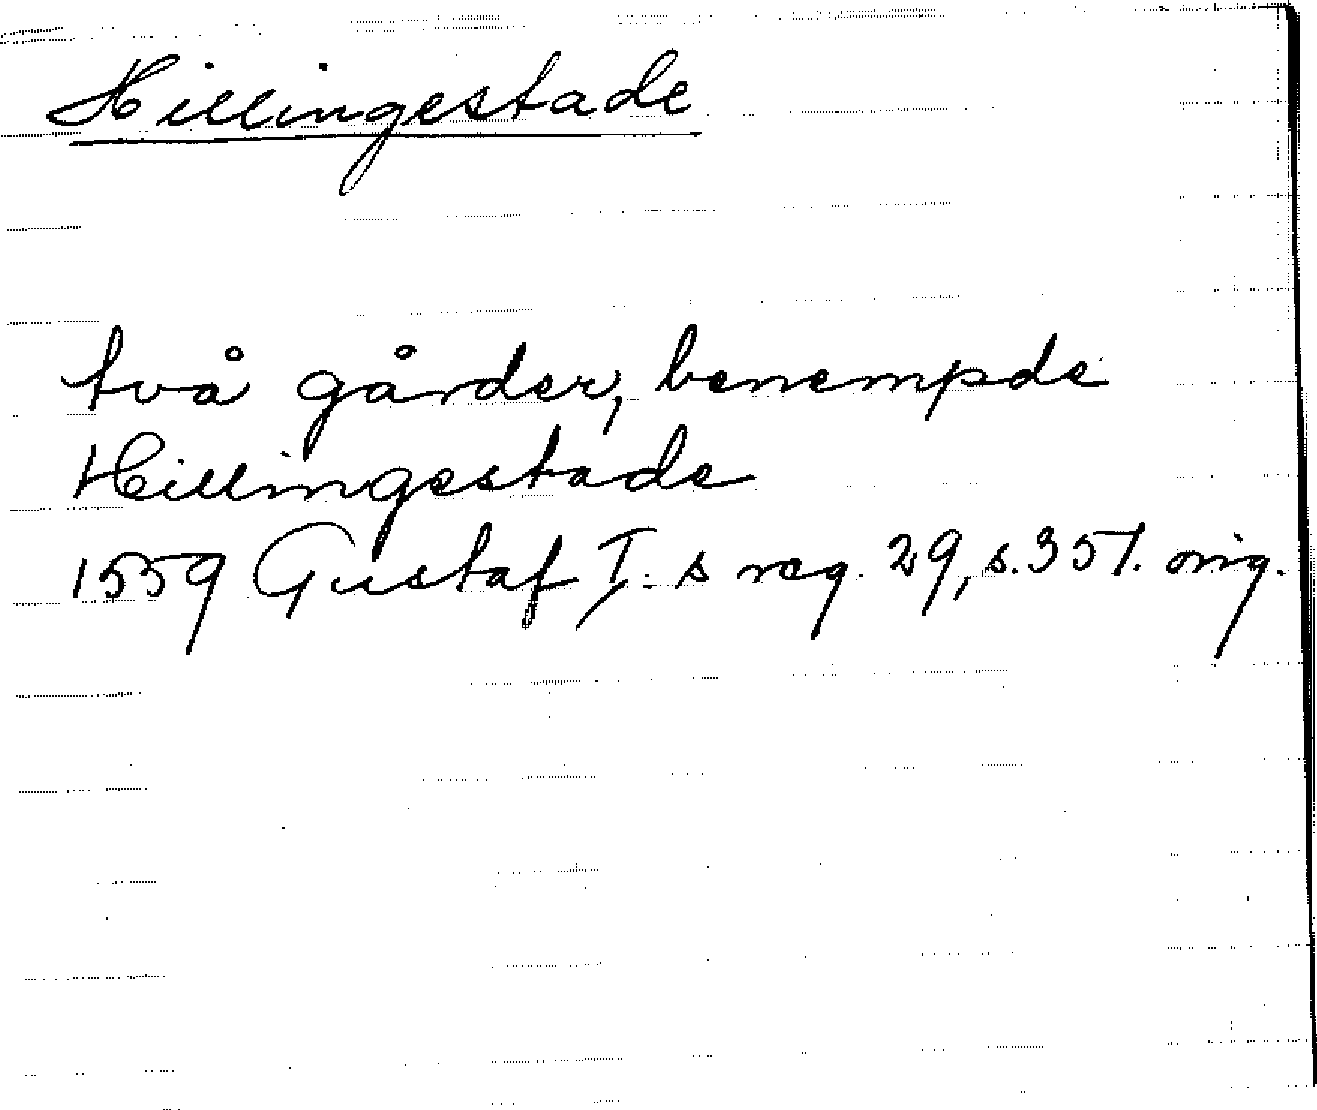 Hillingestade
två gårder, benempde
Hillingestade
1559 Gustaf I. s reg. 29, s. 351. orig.